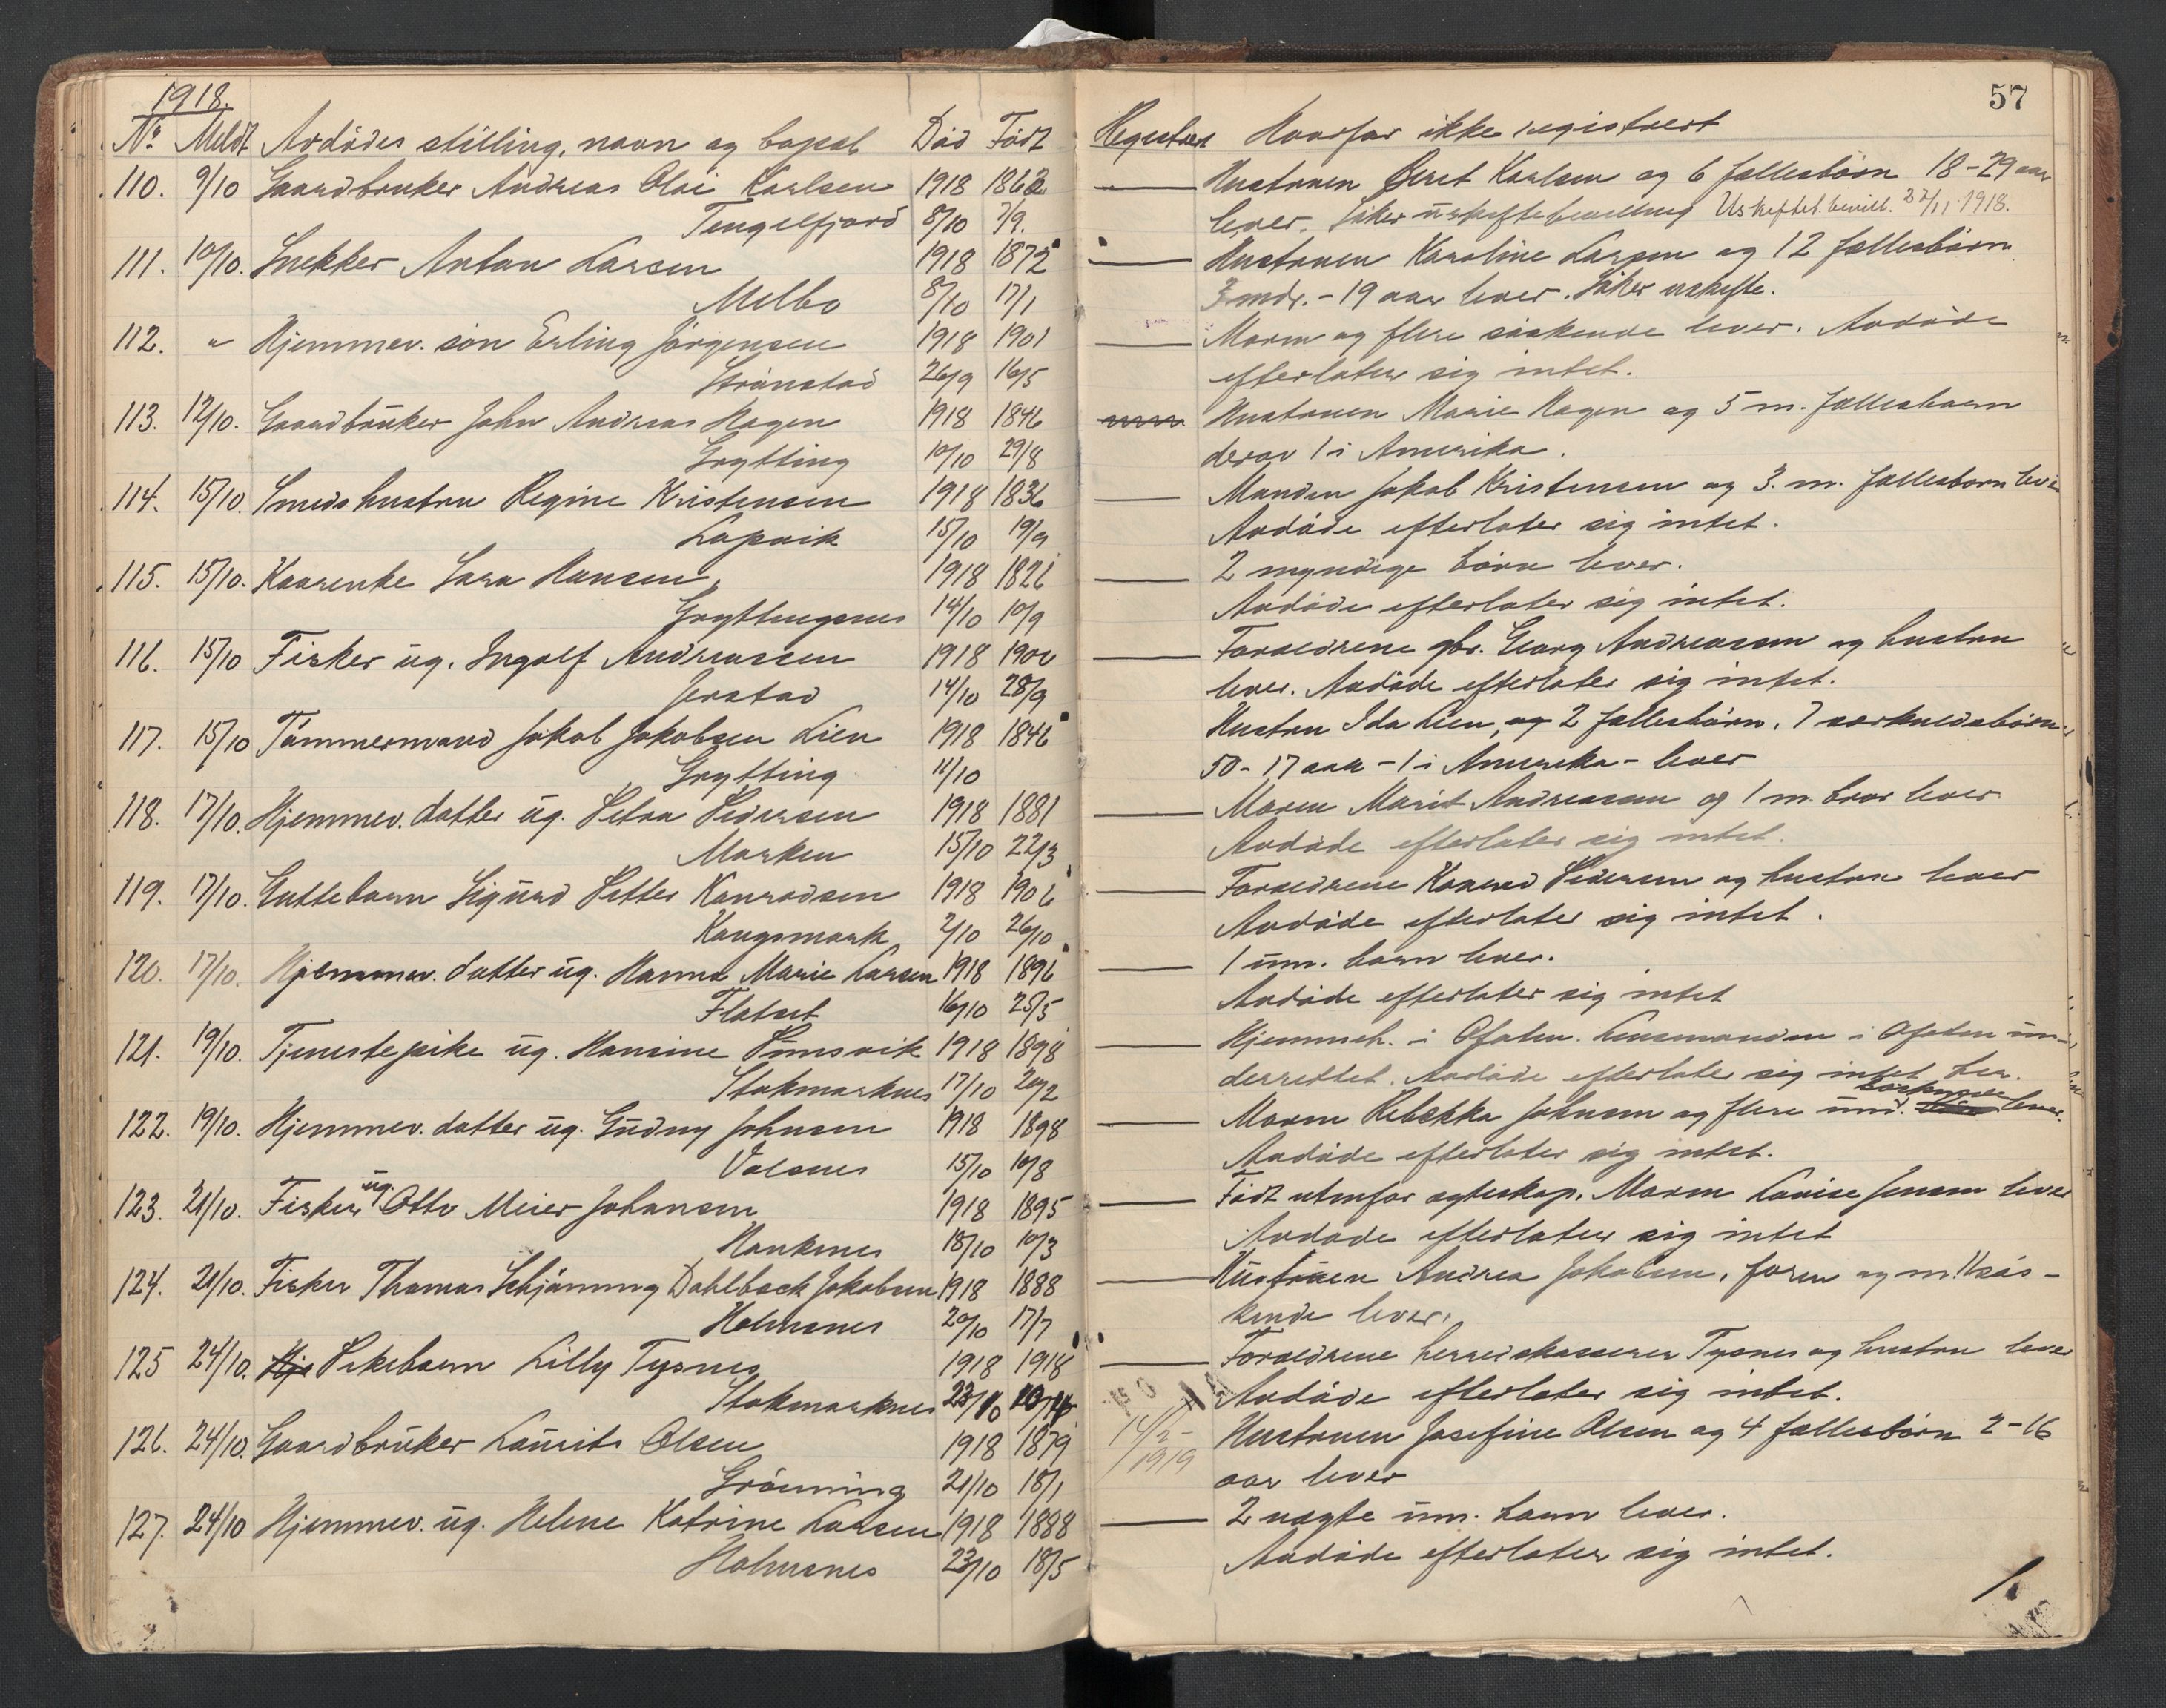 1918.
57
No. Meldt Avdødes stilling, navn og bopæl Død Født Registrert Hvorfor ikke registrert
110. 9/10 Gaardbruker Andreas Olai Karlsen 1918 1862 — Hustruen Beret Karlsen og 6 fællesbørn 18-29 aar
Tengelfjord 8/10 7/9. lever. Søker uskiftebevilling Uskiftet bevill. 22/11 1918.
111. 10/10. Snekker Anton Larsen 1918 1872 — Hustruen Karoline Larsen og 12 fællesbørn
Melbo 8/10 17/1 3 mdr. - 19 aar lever. Søker uskifte.
112. " Hjemmev. søn Erling Jørgensen 1918 1901 — Moren og flere søskende lever. Avdøde
Strønstad 26/9 16/5 efterlater sig intet.
113. 12/10. Gaardbruker John Andreas Hagen 1918 1846 Hustruen Marie Hagen og 5 m. fællesbarn
Grytting 10/10 29/8 derav 1 i Amerika.
114. 15/10. Smedshustru Regine Kristensen 1918 1836 — Manden Jakob Kristensen og 3. m. fællesbarn lever
Lapvik 15/10 19/9 Avdøde efterlater sig intet.
115. 15/10. Kaarenke Sara Hansen, 1918 1826 — 2 myndige børn lever.
Gryttingsnes 14/10 10/9 Avdøde efterlater sig intet.
116. 15/10 Fisker ug. Ingolf Andreassen 1918 1900 — Forældrene gbr. Georg Andreassen og hustru
Jerstad 14/10 28/9 lever. Avdøde efterlater sig intet.
117. 15/10 Tømmermand Jakob Jakobsen Lien 1918 1846 Hustru Ida Lien, og 2 fællesbørn, 7 særkuldsbørn
Grytting 11/10 50-17 aar - 1 i Amerika - lever
118. 17/10. Hjemmev. datter ug. Petra Pedersen 1918 1881 — Moren Marit Andreassen og 1 m. bror lever.
Marken 15/10 22/3 Avdøde efterlater sig intet.
119. 17/10. Guttebarn Sigurd Petter Konradsen 1918 1906 — Forældrene Konrad Pedersen og hustru lever
Kongsmark 2/10 26/10 Avdøde efterlater sig intet.
120. 17/10. Hjemmev. datter ug. Hanna Marie Larsen 1918 1896 — 1 um. barn lever.
Flatset 16/10 25/5 Avdøde efterlater sig intet
121. 19/10. Tjenestepike ug. Hansine Sunsvik 1918 1898 — Hjemmeh. i Ofoten. Lensmanden i Ofoten un-
Stokmarknes 17/10 20/2 derrettet. Avdøde efterlater sig intet her.
122. 19/10. Hjemmev. datter ug. Gudny Johnsen 1918 1898 — Moren Rebekka Johnsen og flere umd. søskende lever.
Valsnes 15/10 10/8 Avdøde efterlater sig intet.
123. 21/10. Fisker ug. Otto Meier Johansen 1918 1895 — Født utenfor egteskap. Moren Lovise Jensen lever
Hauknes 18/10 10/3 Avdøde efterlater sig intet
124. 21/10. Fisker Thomas Schjønning Dahlback Jakobsen 1918 1888 — Hustruen Andrea Jakobsen, faren og m. søs-
Holmsnes 20/10 17/7 kende lever.
125 24/10. Pikebarn Lilly Tysnes 1918 1918 — Forældrene herredskasserer Tysnes og hustru lever
Stokmarknes 23/10 Avdøde efterlater sig intet.
126. 24/10. Gaardbruker Laurits Olsen 1918 1879 14/2-1919 Hustruen Josefine Olsen og 4 fællesbørn 2-16
Grønning 21/10 18/1 aar lever
127. 24/10 Hjemmev. ug. Helene Katrine Larsen 1918 1888 — 2 uegte um. barn lever.
Holmsnes 23/10 18/5 Avdøde efterlater sig intet.